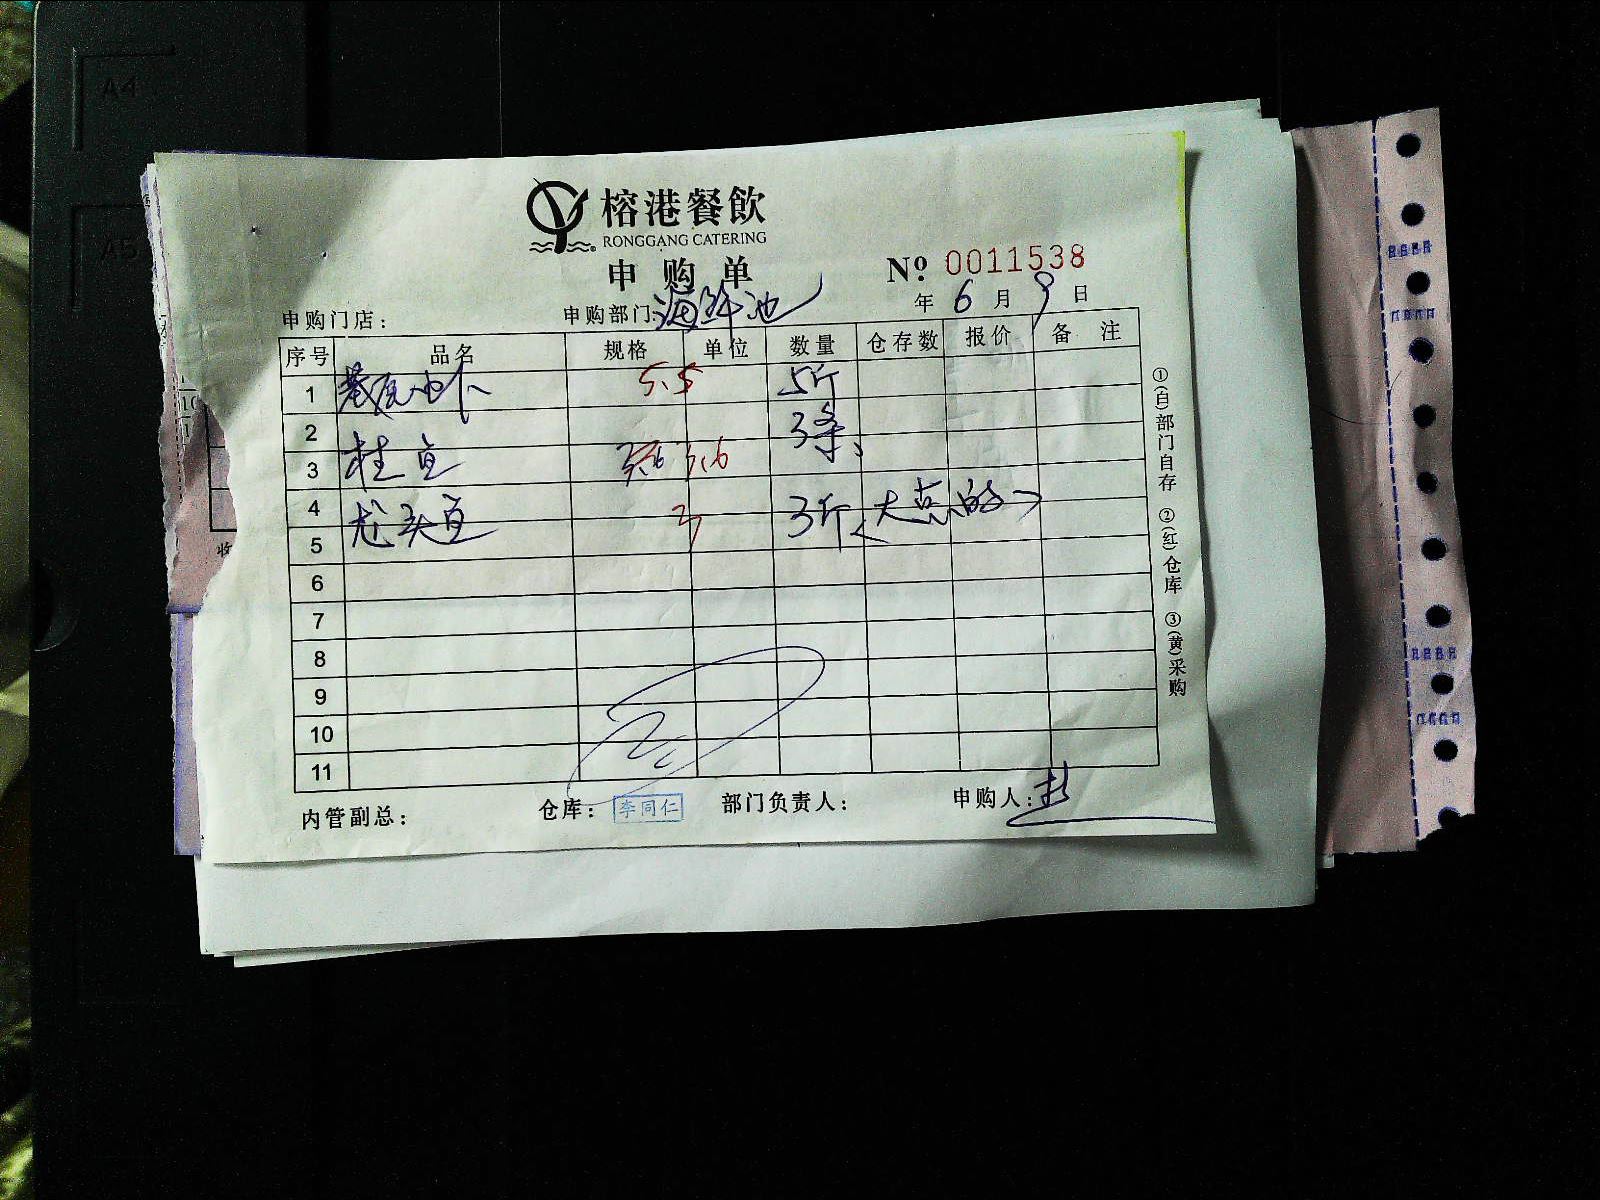 榕港餐飲
RONGGANG CATERING
申购单
№ 0011538
年 6 月 9 日
申购门店： 申购部门：海鲜池
序号 品名 规格 单位 数量 仓存数 报价 备注
1 基尾虾 5.5 5斤
2 3条
3 桂鱼 3.6
4 龙头鱼 3 3斤（大点的）
5
6
7
8
9
10
11
内管副总： 仓库： 李同仁 部门负责人： 申购人：
①(白)部门自存 ②(红)仓库 ③(黄)采购
A4
A5